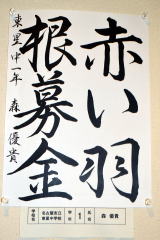 赤い羽
根募金
東星中一年 森 優貴
学校名 名古屋市立東星中学校 学年 1 氏名 森 優貴